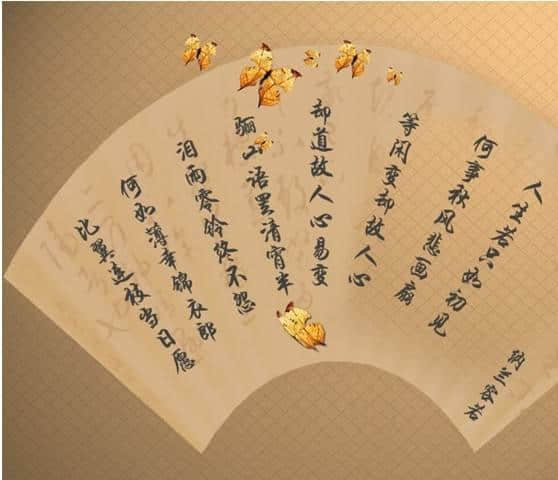 人生若只如初见
何事秋风悲画扇
等闲变却故人心
却道故人心易变
骊山语罢清宵半
泪雨零铃终不怨
何如薄幸锦衣郎
比翼连枝当日愿
纳兰容若